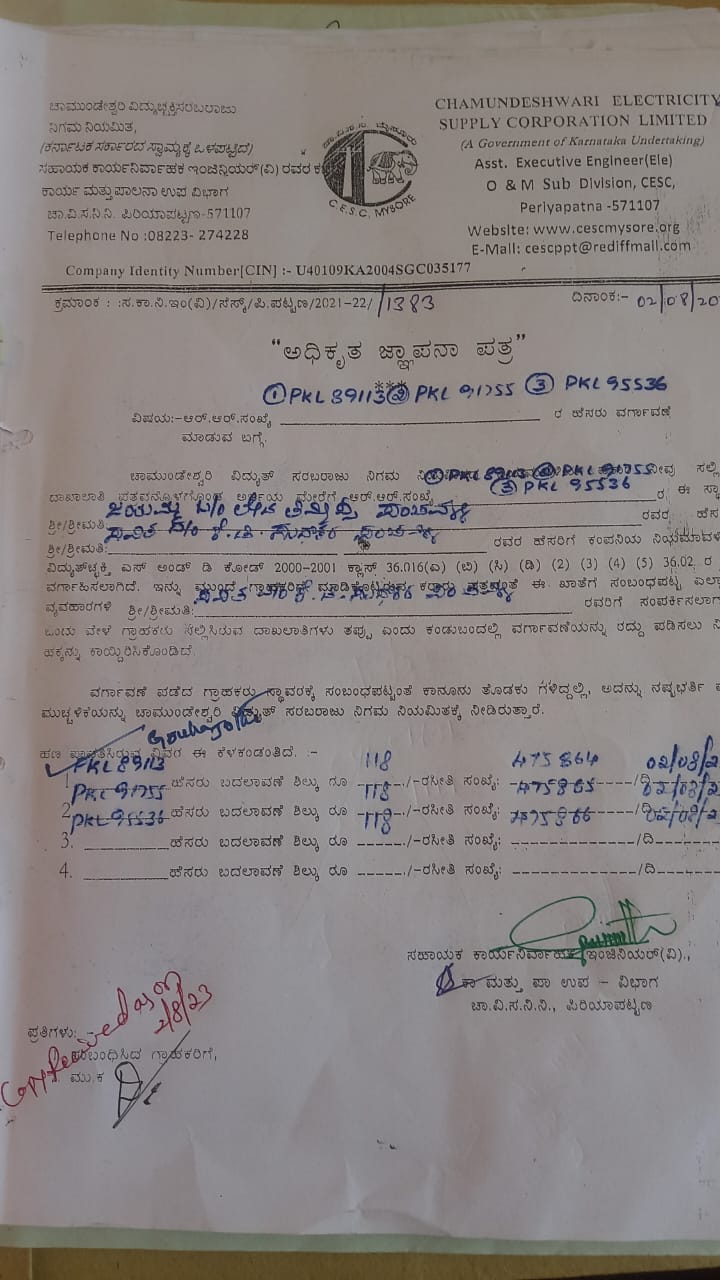 ಚಾಮುಂಡೇಶ್ವರಿ ವಿದ್ಯುಚ್ಛಕ್ತಿಸರಬರಾಜು
ನಿಗಮ ನಿಯಮಿತ,
(ಕರ್ನಾಟಕ ಸರ್ಕಾರದ ಸ್ವಾಮ್ಯಕ್ಕೆ ಒಳಪಟ್ಟಿದೆ)
ಸಹಾಯಕ ಕಾರ್ಯನಿರ್ವಾಹಕ ಇಂಜಿನಿಯರ್(ವಿ) ರವರ ಕ
ಕಾರ್ಯ ಮತ್ತು ಪಾಲನಾ ಉಪ ವಿಭಾಗ
ಚಾ.ವಿ.ಸ.ನಿ.ನಿ. ಪಿರಿಯಾಪಟ್ಟಣ-571107
Telephone No :08223- 274228
C.E.S.C, MYSORE
CHAMUNDESHWARI ELECTRICITY
SUPPLY CORPORATION LIMITED
(A Government of Karnataka Undertaking)
Asst. Executive Engineer(Ele)
O & M Sub Division, CESC,
Periyapatna -571107
Website: www.cescmysore.org
E-Mail: cescppt@rediffmail.com
Company Identity Number[CIN] :- U40109KA2004SGC035177
ಕ್ರಮಾಂಕ : :ಸ.ಕಾ.ನಿ.ಇಂ(ವಿ)/ಸೆಸ್ಕ್/ಪಿ.ಪಟ್ಟಣ/2021-22/ /1383 ದಿನಾಂಕ:- 02/08/20
“ಅಧಿಕೃತ ಜ್ಞಾಪನಾ ಪತ್ರ”
***
① PKL 89113 ② PKL 91755 ③ PKL 95536
ವಿಷಯ:-ಆರ್.ಆರ್.ಸಂಖ್ಯೆ ರ ಹೆಸರು ವರ್ಗಾವಣೆ
ಮಾಡುವ ಬಗ್ಗೆ.
ಚಾಮುಂಡೇಶ್ವರಿ ವಿದ್ಯುತ್ ಸರಬರಾಜು ನಿಗಮ ① PKL 89113 ② PKL 91755 ನೀವು ಸಲ್ಲಿ
ದಾಖಲಾತಿ ಪತ್ರವನ್ನೊಳಗೊಂಡ ಅರ್ಜಿಯ ಮೇರೆಗೆ ಆರ್.ಆರ್.ಸಂಖ್ಯೆ ③ PKL 95536 ರ ಈ ಸ್ಥಾ
ಶ್ರೀ/ಶ್ರೀಮತಿ: ರವರ ಹೆಸ
ಶ್ರೀ/ಶ್ರೀಮತಿ: ರವರ ಹೆಸರಿಗೆ ಕಂಪನಿಯ ನಿಯಮಾವಳಿ
ವಿದ್ಯುತ್‌ಚ್ಛಕ್ತಿ ಎಸ್ ಅಂಡ್ ಡಿ ಕೋಡ್ 2000-2001 ಕ್ಲಾಸ್ 36.016(ಎ) (ಬಿ) (ಸಿ) (ಡಿ) (2) (3) (4) (5) 36.02 ರ
ವರ್ಗಾಹಿಸಲಾಗಿದೆ. ಇನ್ನು ಮುಂದೆ ಗ್ರಾಹಕರಿಗೆ ಮಾಡಿಕೊಟ್ಟಿರುವ ಕರಾರು ಪತ್ರದಂತೆ ಈ ಖಾತೆಗೆ ಸಂಬಂಧಪಟ್ಟ ಎಲ್ಲಾ
ವ್ಯವಹಾರಗಳ ಶ್ರೀ/ಶ್ರೀಮತಿ: ರವರಿಗೆ ಸಂಪರ್ಕಿಸಲಾಗ
ಒಂದು ವೇಳೆ ಗ್ರಾಹಕರು ಸಲ್ಲಿಸಿರುವ ದಾಖಲಾತಿಗಳು ತಪ್ಪು ಎಂದು ಕಂಡುಬಂದಲ್ಲಿ ವರ್ಗಾವಣೆಯನ್ನು ರದ್ದು ಪಡಿಸಲು ನಿ
ಹಕ್ಕನ್ನು ಕಾಯ್ದಿರಿಸಿಕೊಂಡಿದೆ.
ವರ್ಗಾವಣೆ ಪಡೆದ ಗ್ರಾಹಕರು ಸ್ಥಾವರಕ್ಕೆ ಸಂಬಂಧಪಟ್ಟಂತೆ ಕಾನೂನು ತೊಡಕು ಗಳಿದ್ದಲ್ಲಿ, ಅದನ್ನು ನಷ್ಟಭರ್ತಿ
ಮುಚ್ಚಳಿಕೆಯನ್ನು ಚಾಮುಂಡೇಶ್ವರಿ ವಿದ್ಯುತ್ ಸರಬರಾಜು ನಿಗಮ ನಿಯಮಿತಕ್ಕೆ ನೀಡಿರುತ್ತಾರೆ.
ಹಣ ಪಾವತಿಸಿರುವ ವಿವರ ಈ ಕೆಳಕಂಡಂತಿದೆ. :-
1. PKL 89113 ಹೆಸರು ಬದಲಾವಣೆ ಶಿಲ್ಕು ರೂ 118 /-ರಸೀತಿ ಸಂಖ್ಯೆ: 475864 /ದಿ 02/08/2
2. PKL 91755 ಹೆಸರು ಬದಲಾವಣೆ ಶಿಲ್ಕು ರೂ 118 /-ರಸೀತಿ ಸಂಖ್ಯೆ: 475865 /ದಿ 02/08/2
3. PKL 95536 ಹೆಸರು ಬದಲಾವಣೆ ಶಿಲ್ಕು ರೂ 118 /-ರಸೀತಿ ಸಂಖ್ಯೆ: 475866 /ದಿ 02/08/2
4. ಹೆಸರು ಬದಲಾವಣೆ ಶಿಲ್ಕು ರೂ /-ರಸೀತಿ ಸಂಖ್ಯೆ: /ದಿ
ಸಹಾಯಕ ಕಾರ್ಯನಿರ್ವಾಹಕ ಇಂಜಿನಿಯರ್(ವಿ).,
ಕಾ ಮತ್ತು ಪಾ ಉಪ – ವಿಭಾಗ
ಚಾ.ವಿ.ಸ.ನಿ.ನಿ., ಪಿರಿಯಾಪಟ್ಟಣ
Copy Received as on
2/8/23
ಪ್ರತಿಗಳು: -
ಸಂಬಂಧಿಸಿದ ಗ್ರಾಹಕರಿಗೆ,
ಮು.ಕ